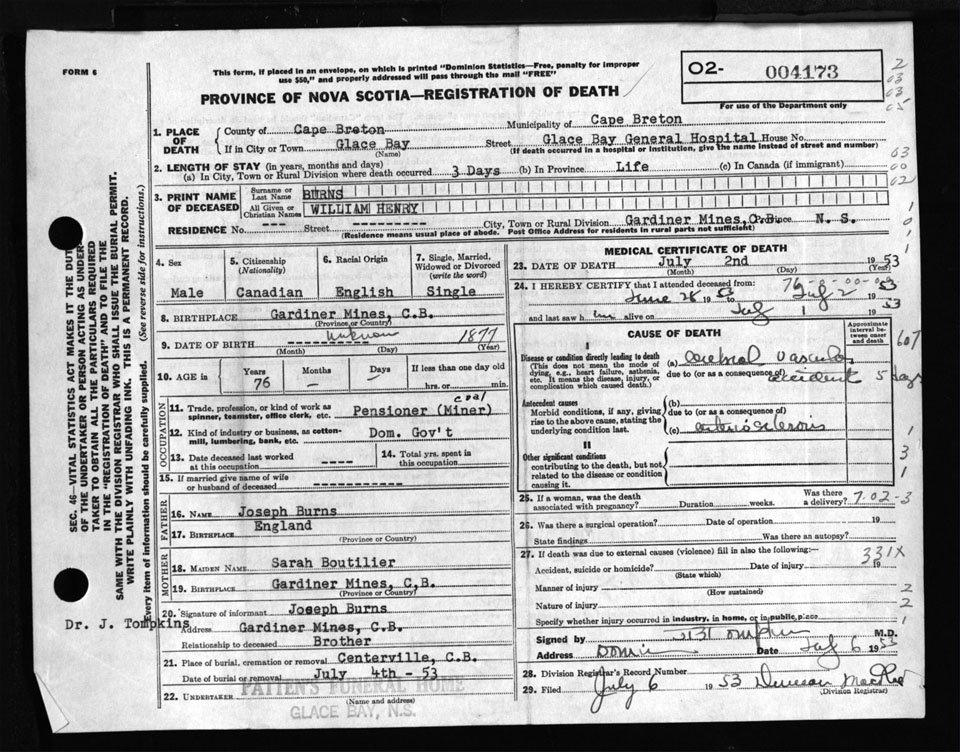 FORM 6
This form, if placed in an envelope, on which is printed "Dominion Statistics—Free, penalty for improper
use $50," and properly addressed will pass through the mail "FREE"
PROVINCE OF NOVA SCOTIA—REGISTRATION OF DEATH
O2- 004173
For use of the Department only
2
03
03
05
1. PLACE OF DEATH
County of Cape Breton Municipality of Cape Breton
If in City or Town Glace Bay Street Glace Bay General Hospital House No.
(Name) (If death occurred in a hospital or institution, give the name instead of street and number)
2. LENGTH OF STAY (in years, months and days)
(a) In City, Town or Rural Division where death occurred 3 Days (b) In Province Life (c) In Canada (if immigrant)
03
00
02
3. PRINT NAME OF DECEASED
Surname or Last Name BURNS
All Given or Christian Names WILLIAM HENRY
RESIDENCE No. --- Street ---------- City, Town or Rural Division Gardiner Mines, C.B. Province N. S.
(Residence means usual place of abode. Post Office Address for residents in rural parts not sufficient)
4. Sex
Male
5. Citizenship (Nationality)
Canadian
6. Racial Origin
English
7. Single, Married, Widowed or Divorced (write the word)
Single
8. BIRTHPLACE Gardiner Mines, C.B.
(Province or Country)
9. DATE OF BIRTH unknown 1877
(Month) (Day) (Year)
10. AGE in Years Months Days If less than one day old
76 — — hrs. or min.
OCCUPATION
11. Trade, profession, or kind of work as spinner, teamster, office clerk, etc. Pensioner (coal Miner)
12. Kind of industry or business, as cotton-mill, lumbering, bank, etc. Dom. Gov't
13. Date deceased last worked at this occupation ----
14. Total yrs. spent in this occupation
15. If married give name of wife or husband of deceased ----------
FATHER
16. NAME Joseph Burns
17. BIRTHPLACE England
(Province or Country)
MOTHER
18. MAIDEN NAME Sarah Boutilier
19. BIRTHPLACE Gardiner Mines, C.B.
(Province or Country)
20. Signature of informant Joseph Burns
Address Gardiner Mines, C.B.
Relationship to deceased Brother
21. Place of burial, cremation or removal Centerville, C.B.
Date of burial or removal July 4th - 53
22. UNDERTAKER PATTEN'S FUNERAL HOME
(Name and address)
GLACE BAY, N.S.
Dr. J. Tompkins
SEC. 46—VITAL STATISTICS ACT MAKES IT THE DUTY
OF THE UNDERTAKER OR PERSON ACTING AS UNDER-
TAKER TO OBTAIN ALL THE PARTICULARS REQUIRED
IN THE "REGISTRATION OF DEATH" AND TO FILE THE
SAME WITH THE DIVISION REGISTRAR WHO SHALL ISSUE THE BURIAL PERMIT.
WRITE PLAINLY WITH UNFADING INK. THIS IS A PERMANENT RECORD.
Every item of information should be carefully supplied. (See reverse side for instructions.)
MEDICAL CERTIFICATE OF DEATH
23. DATE OF DEATH July 2nd 1953
(Month) (Day) (Year)
24. I HEREBY CERTIFY that I attended deceased from: 76-00-00
June 28 1953 to July 2 53
and last saw him alive on July 1 1953
CAUSE OF DEATH
Approximate interval between onset and death
I
Disease or condition directly leading to death
(This does not mean the mode of dying, e.g., heart failure, asthenia, etc. It means the disease, injury, or complication which caused death.)
(a) Cerebral Vascular
due to (or as a consequence of) accident 5 days
Antecedent causes
Morbid conditions, if any, giving rise to the above cause, stating the underlying condition last.
(b)
due to (or as a consequence of)
(c) arteriosclerosis
II
Other significant conditions
contributing to the death, but not related to the disease or condition causing it.
607
1
3
1
25. If a woman, was the death associated with pregnancy? Duration weeks. Was there a delivery? 7.02-3
26. Was there a surgical operation? Date of operation 19
State findings Was there an autopsy?
27. If death was due to external causes (violence) fill in also the following:
331X
Accident, suicide or homicide? Date of injury 19
(State which)
Manner of injury
(How sustained)
Nature of injury
Specify whether injury occurred in industry, in home, or in public place
2
2
1
Signed by J. Tompkins M.D.
Address Dom'n Date July 6 1953
28. Division Registrar's Record Number
29. Filed July 6 1953 Duncan
(Division Registrar)